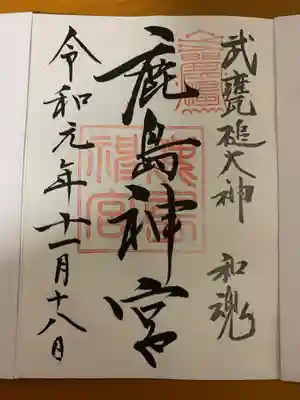 武甕槌大神 和魂
鹿島神宮
鹿島神宮
令和元年十一月十八日